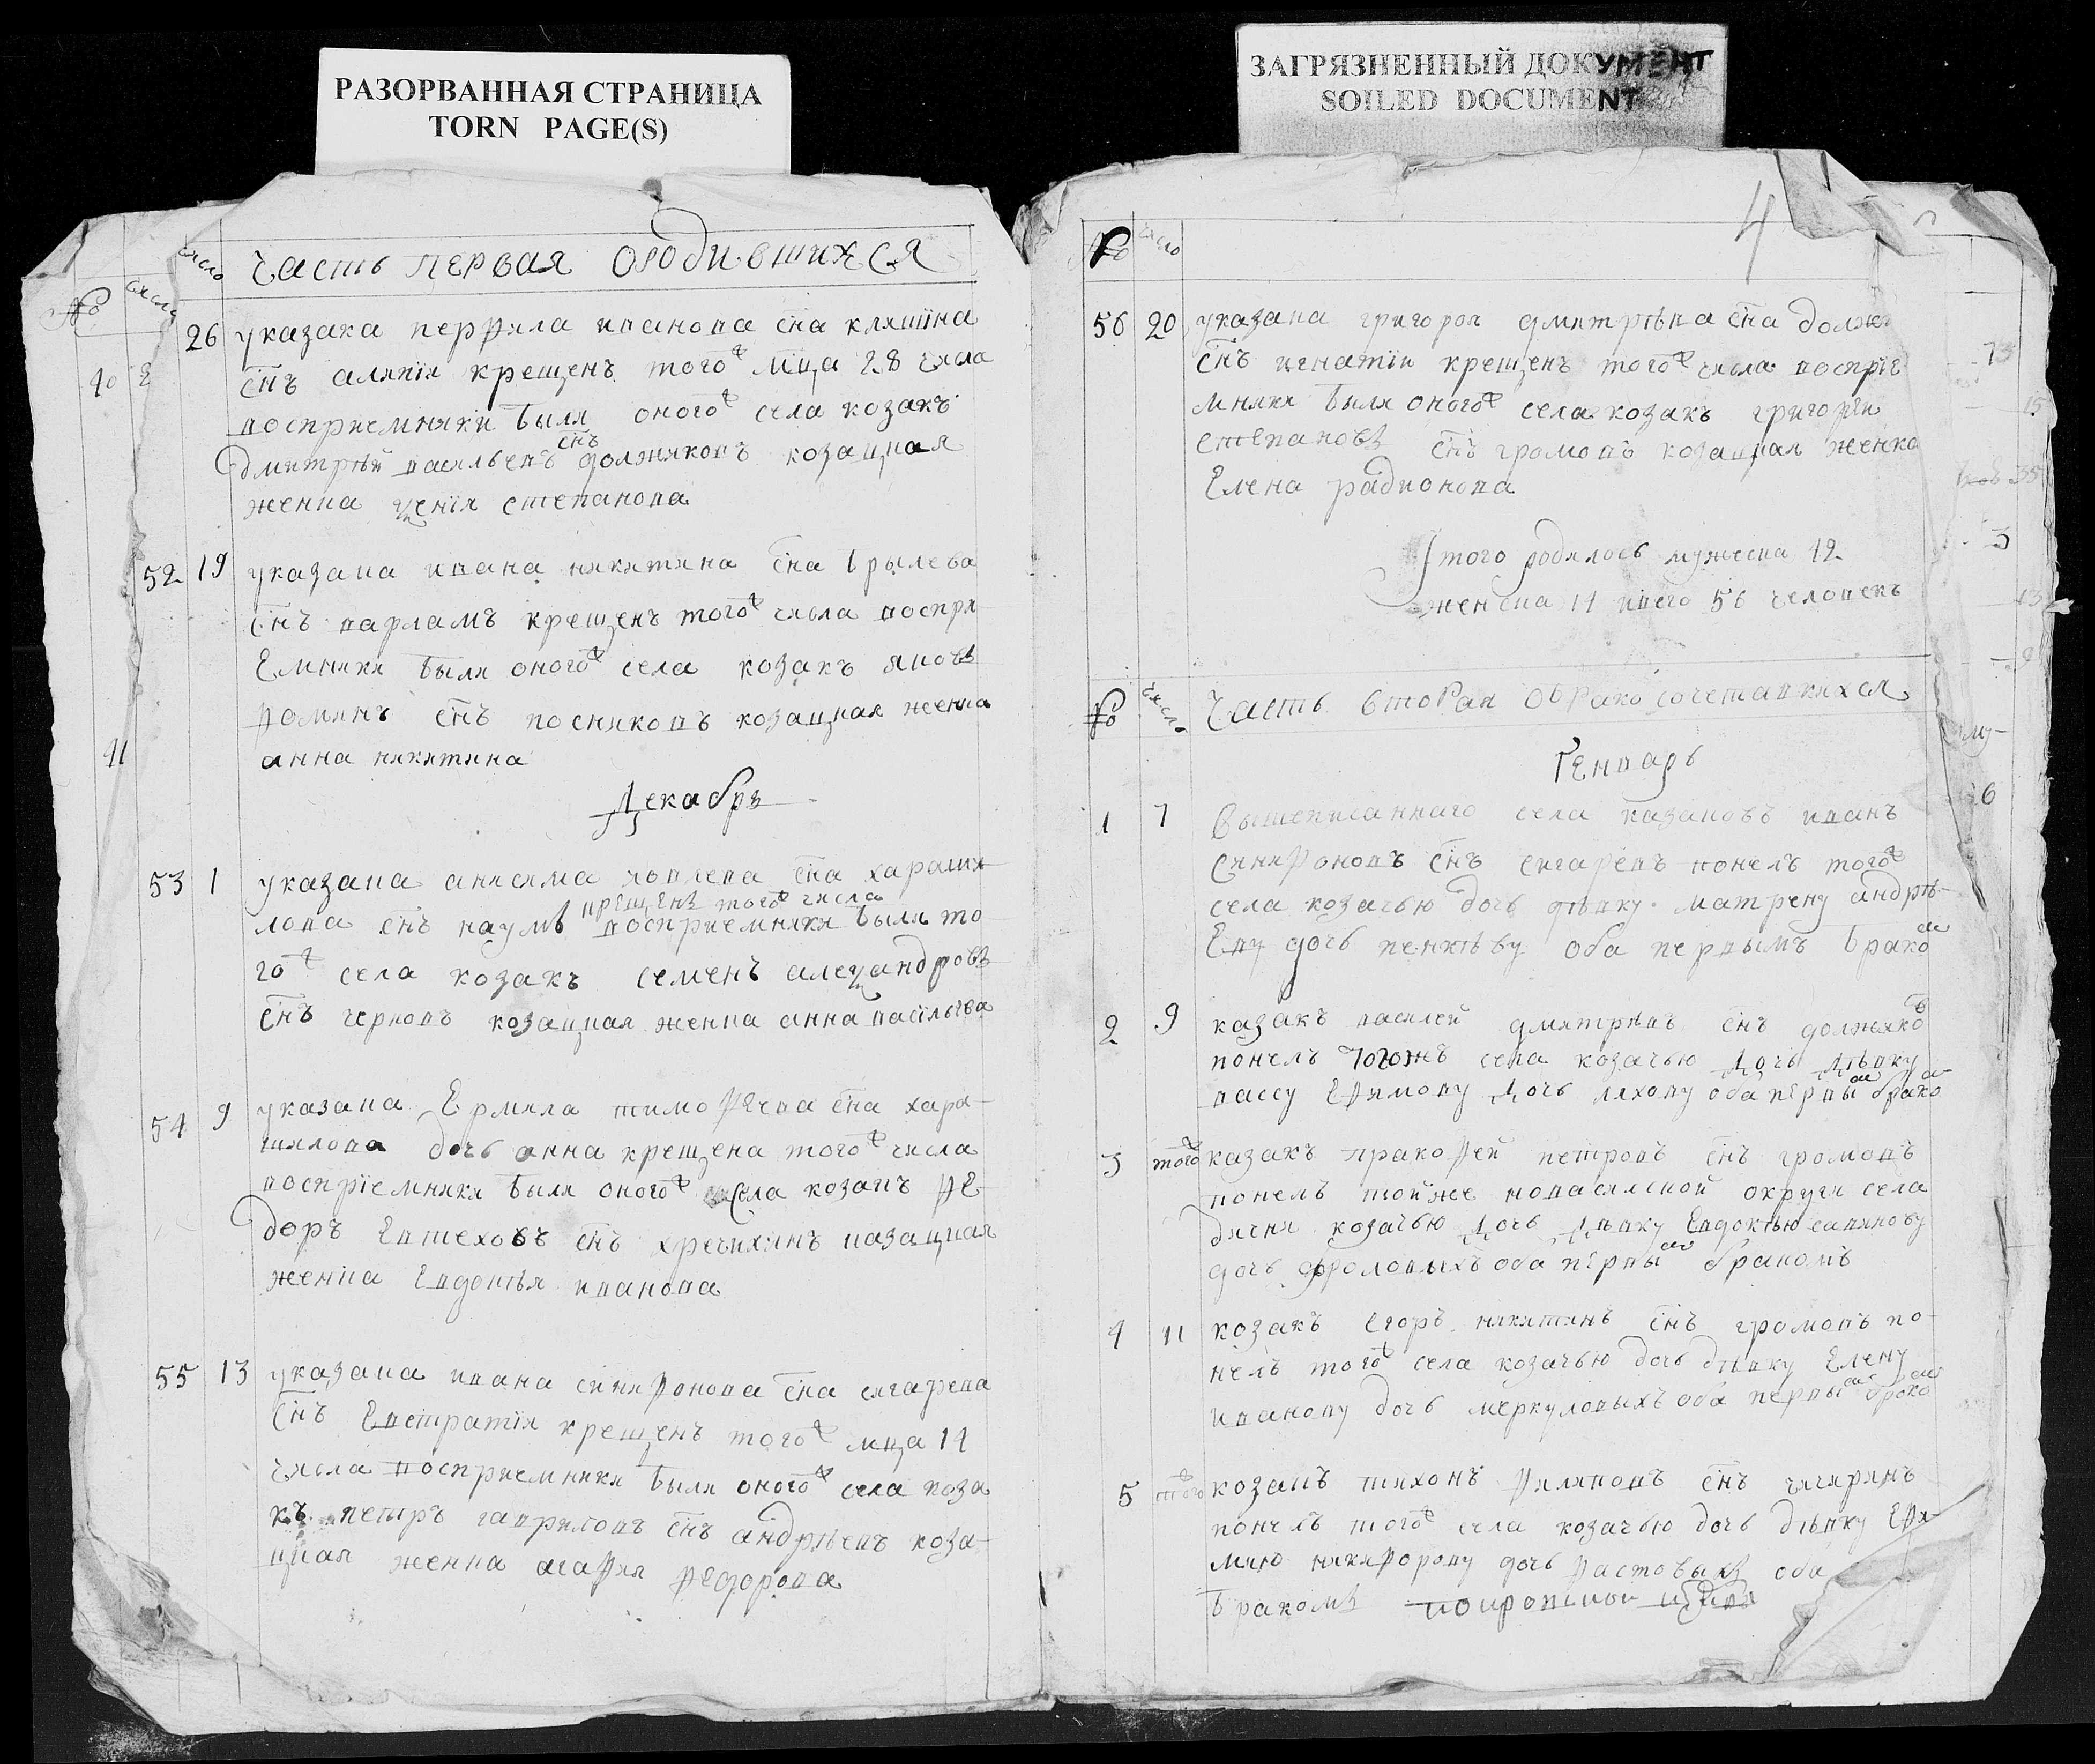 РАЗОРВАННАЯ СТРАНИЦА
TORN PAGE(S)
число Часть первая ородившихся
№ число
26 у казака перфила иванова сна кляшина
снъ алипiи крещенъ того ж мца 28 числа
40
восприемники были оного ж села козакъ
дмитрѣй васильевъ снъ должиковъ козацкая
женка ѯенiя степанова
52 19 у казака ивана никитина сна брылева
снъ варламъ крещенъ того ж числа воспри
емники были оного ж села козакъ яковъ
фоминъ снъ посниковъ козацкая женка
41 анна никитина
декабрь
53 1 у казака анисима яковлева сна хараши
крещенъ того ж числа
лова снъ наумъ восприемники были то
го ж села козакъ семенъ алеѯандровъ
снъ черновъ козацкая женка анна васильева
54 9 у казака Ермила тимофеева сна хара-
шилова дочь анна крещена того ж числа
воспрiемники были оного ж села козакъ фе
доръ Евтеховъ снъ хречихинъ казацкая
женка Евдокъя иванова
55 13 у казака ивана синифонова сна сигарева
снъ Евстратiи крещенъ того ж мца 14
числа восприемники были оного ж села коза
къ петръ гавриловъ снъ андрѣевъ коза-
цкая женка агафия федорова
ЗАГРЯЗНЕННЫЙ ДОКУМЕНТ
SOILED DOCUMENT
4
№ число
56 20 у казака григорья дмитрѣва сна должи
снъ игнатiи крещенъ того ж числа воспрiе
мники были оного ж села козакъ григорѣи
степановъ снъ громовъ козацкая женка
Елена радионова
Iтого родилось мужеска 42
женска 14 всего 56 человекъ
№ число Часть вторая обрако сочетавшихся
Генварь
1 7 Вышеписаннаго села казаковъ иванъ
синифоновъ снъ сигаревъ понелъ того ж
села козачью дочь дѣвку матрену андрѣ-
Еву дочь пенкѣву оба первымъ брако м
2 9 казакъ василей дмитрѣвъ снъ должико в
понелъ тогожъ села козачью дочь дѣвку
вассу Ефимову дочь ляхову оба первы м брако м
3 того ж казакъ пракофей петровъ снъ громовъ
понелъ тойже новасилской округи села
дични козачью дочь дѣвку Евдокѣю савинову
дочь фроловыхъ оба первы м бракомъ
4 11 козакъ Егоръ никитинъ снъ громовъ по-
нелъ того ж села козачью дочь дѣвку Елену
иванову дочь меркуловыхъ оба первы м брако м
5 того ж козакъ тихонъ филиповъ снъ чичеринъ
понелъ того ж села козачью дочь дѣвку Ефи-
мию никифорову дочь растовыхъ оба
бракомъ